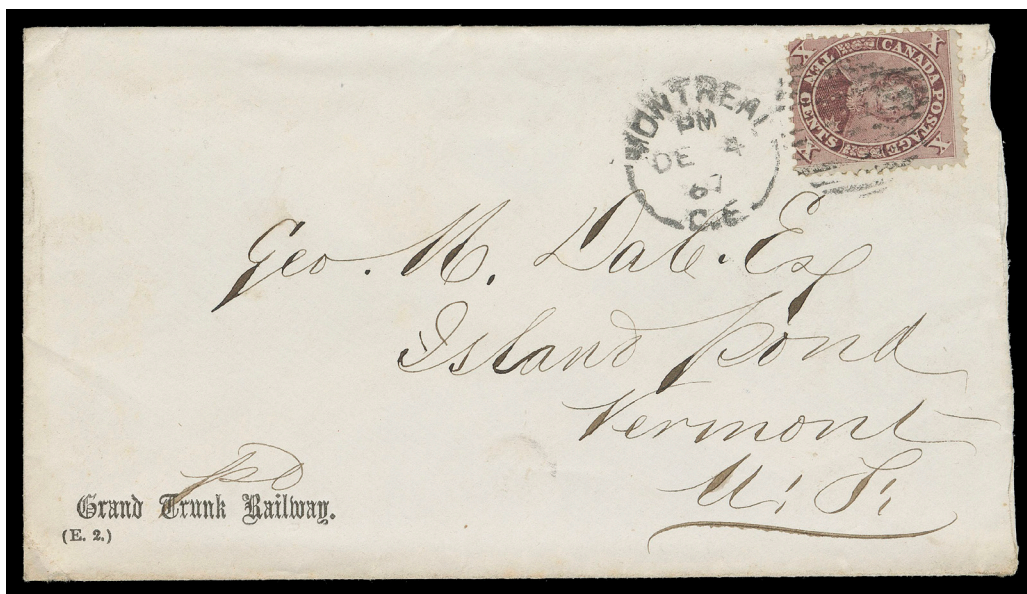 CANADA POSTAGE
TEN CENTS
X X X X
MONTREAL
PM
DE 4
67
C.E
Geo. M. Dale. Esq
Island Pond
Vermont
U. S.
pd
Grand Trunk Railway.
(E. 2.)